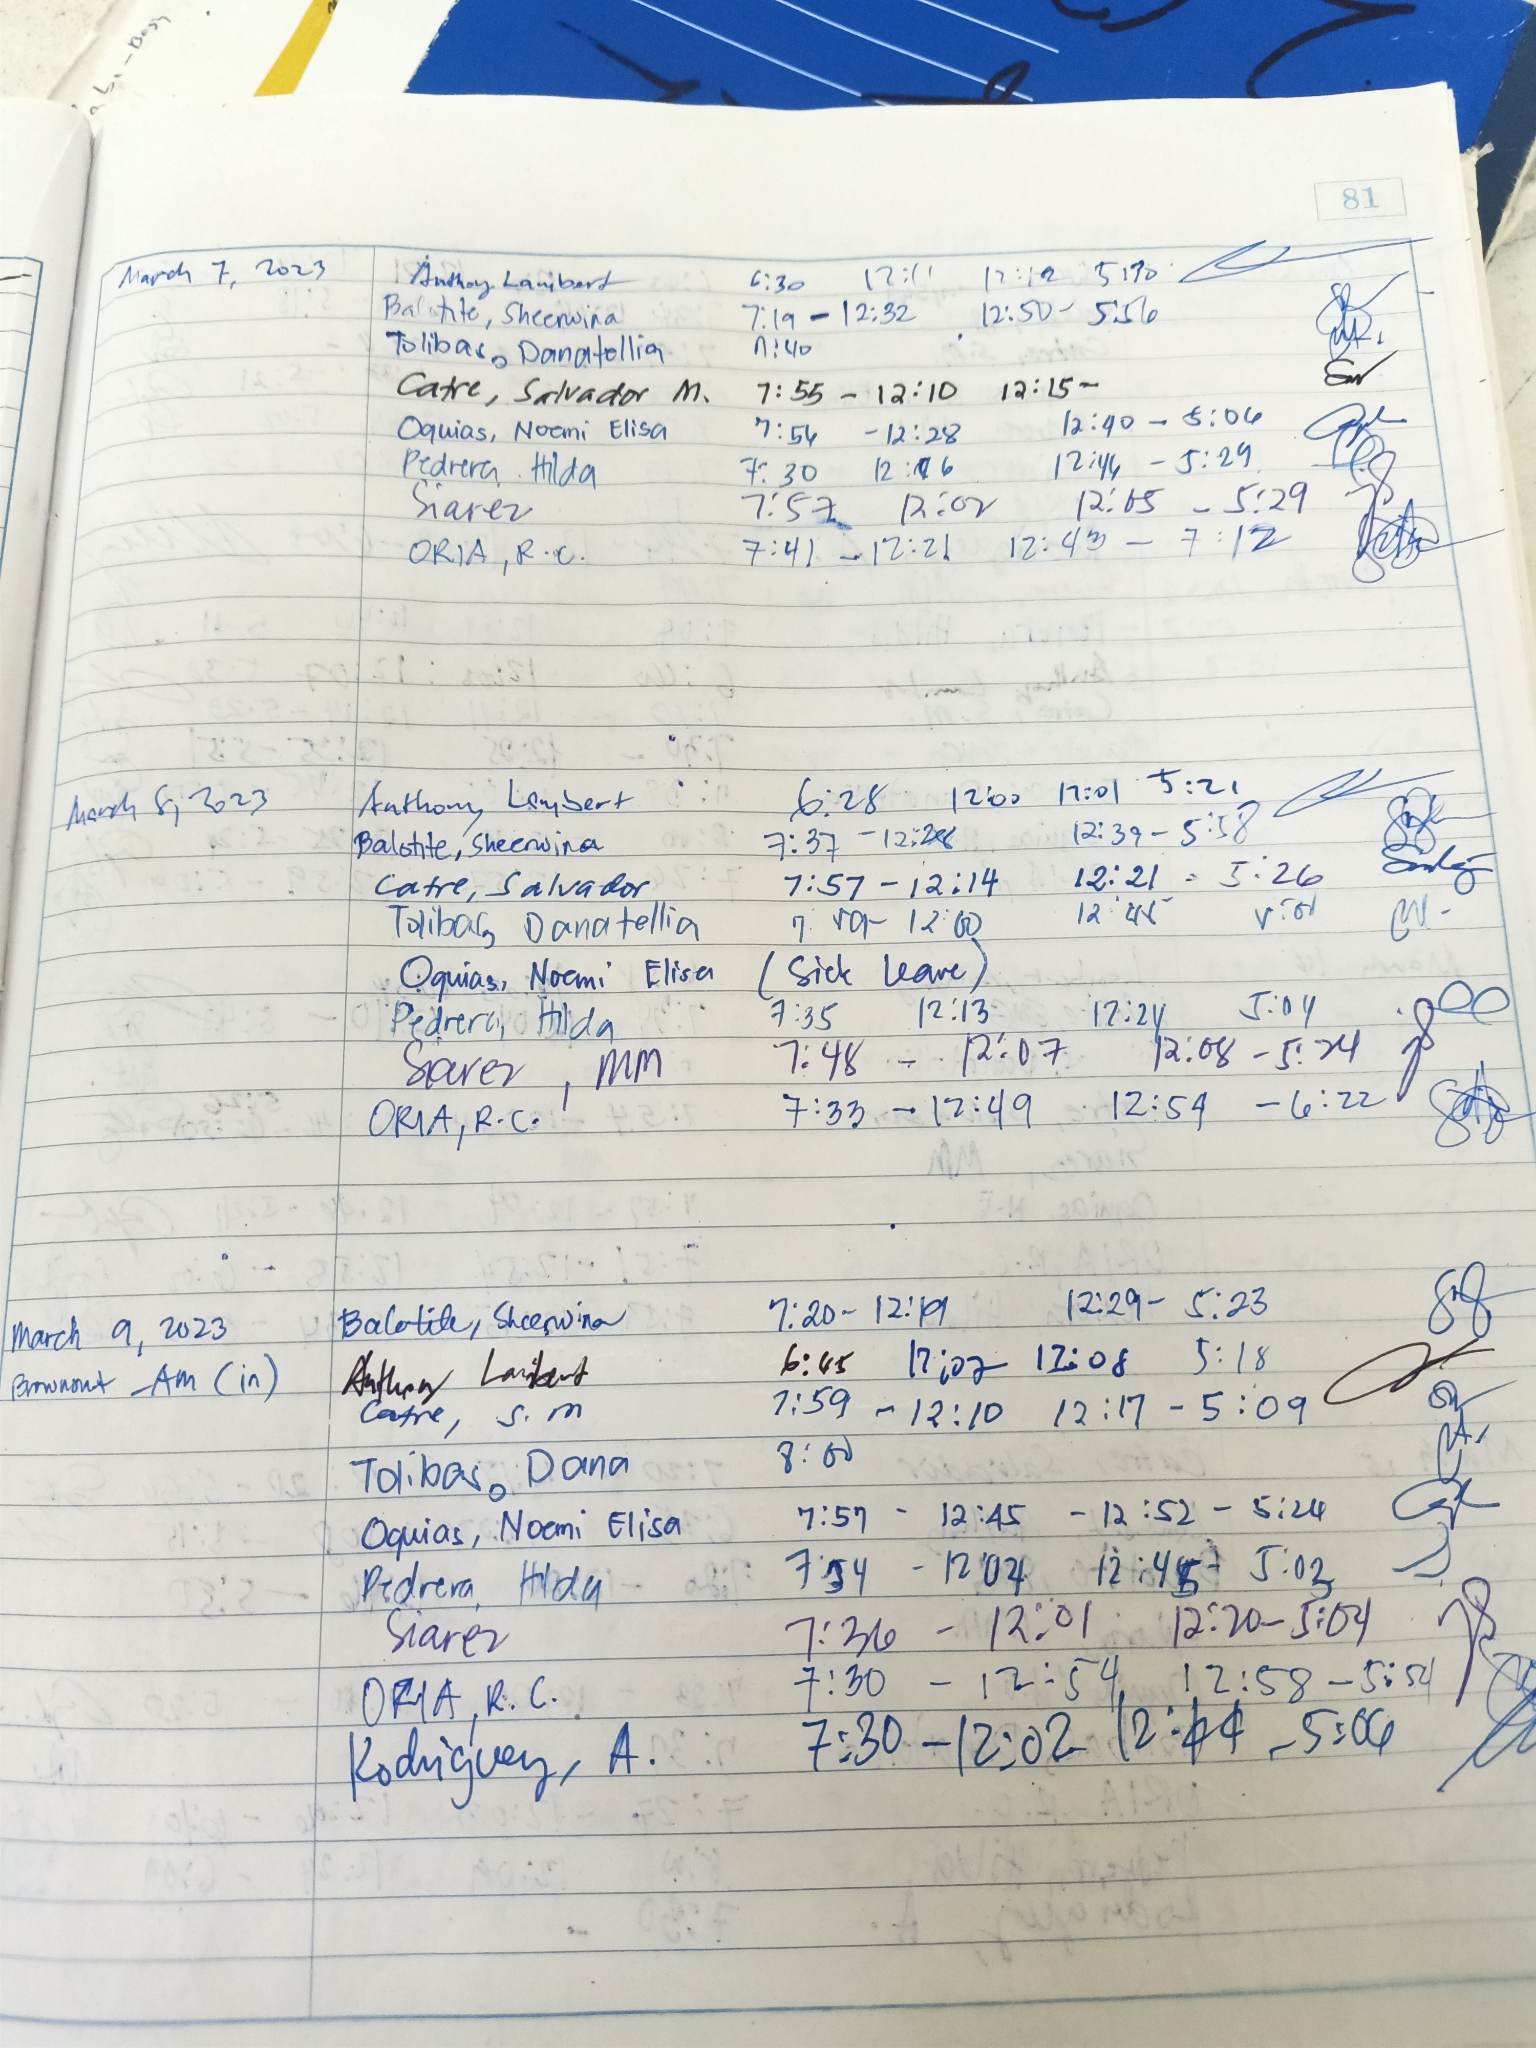 81
March 7, 2023 Anthony Lambert 6:30 12:11 12:12 5:30
Balotite, Sheerwina 7:19 - 12:32 12:50 - 5:56
Tolibas, Danatellia 7:40
Catre, Salvador M. 7:55 - 12:10 12:15 -
Oquias, Noemi Elisa 7:54 - 12:28 12:40 - 5:06
Pedrera, Hilda 7:30 12:16 12:44 - 5:29
Siarez 7:57 12:02 12:05 - 5:29
ORIA, R.C. 7:41 - 12:21 12:43 - 7:12
March 8, 2023 Anthony Lambert 6:28 12:00 12:01 5:21
Balotite, Sheerwina 7:37 - 12:28 12:39 - 5:58
Catre, Salvador 7:57 - 12:14 12:21 - 5:26
Tolibas, Danatellia 12:00 12:45
Oquias, Noemi Elisa (Sick Leave)
Pedrera, Hilda 7:35 12:13 12:24 5:04
Siarez, MM 7:48 - 12:07 12:08 - 5:24
ORIA, R.C. 7:33 - 12:49 12:54 - 6:22
March 9, 2023 Balotite, Sheerwina 7:20 - 12:19 12:29 - 5:23
Brownout - AM (in) Anthony Lambert 6:45 12:02 12:08 5:18
Catre, S.M 7:59 - 12:10 12:17 - 5:09
Tolibas, Dana 8:00
Oquias, Noemi Elisa 7:57 - 12:45 - 12:52 - 5:24
Pedrera, Hilda 7:54 - 12:04 12:45 5:03
Siarez 7:36 - 12:01 12:20 - 5:04
ORIA, R.C. 7:30 - 12:54 12:58 - 5:54
Rodriguez, A. 7:30 - 12:02 12:44 - 5:06